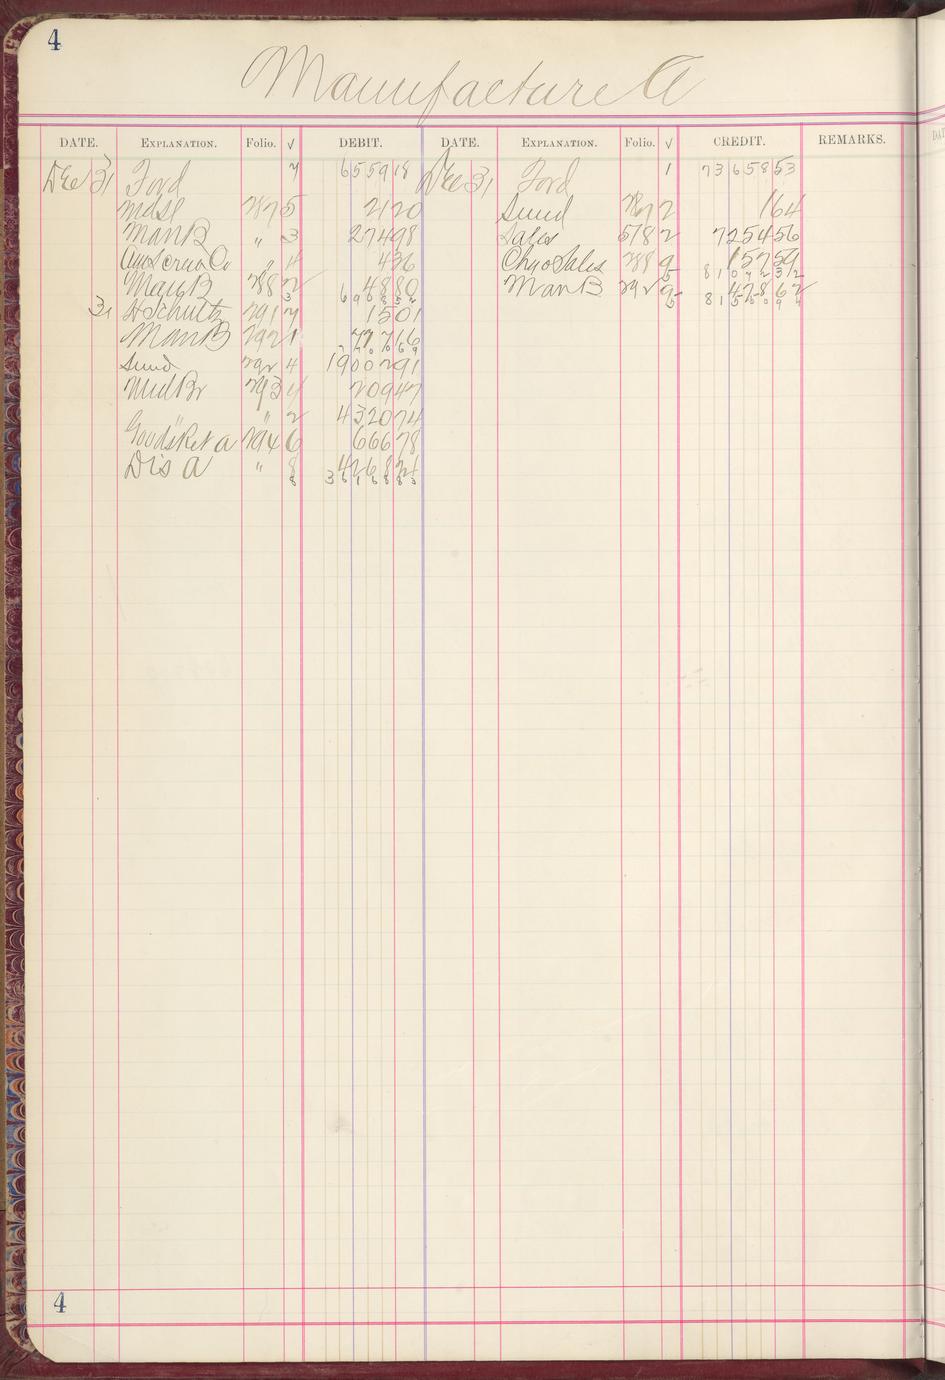 4
Manufacture A
DATE. EXPLANATION. Folio. √ DEBIT. DATE. EXPLANATION. Folio. √ CREDIT. REMARKS.
Dec 31 Ford 7 655918 Dec 31 Ford 1 7365853
Mdse 787 5 2120 Sund 787 2 164
Man B " 3 27498 Sales 518 2 725456
Screw Co " 4 436 Chgo Sales 788 9 15759
8107232
Man B 788 2 4880 Man B 792 9 47862
3 5 8155094
31 Schultz 791 7 1501
Man B 792 1 77716
Sund 792 4 1900291
Mid Br 793 4 20947
" 2 432074
Goods Ret A 794 6 66678
Dis A " 8 426821
8 3616883
4